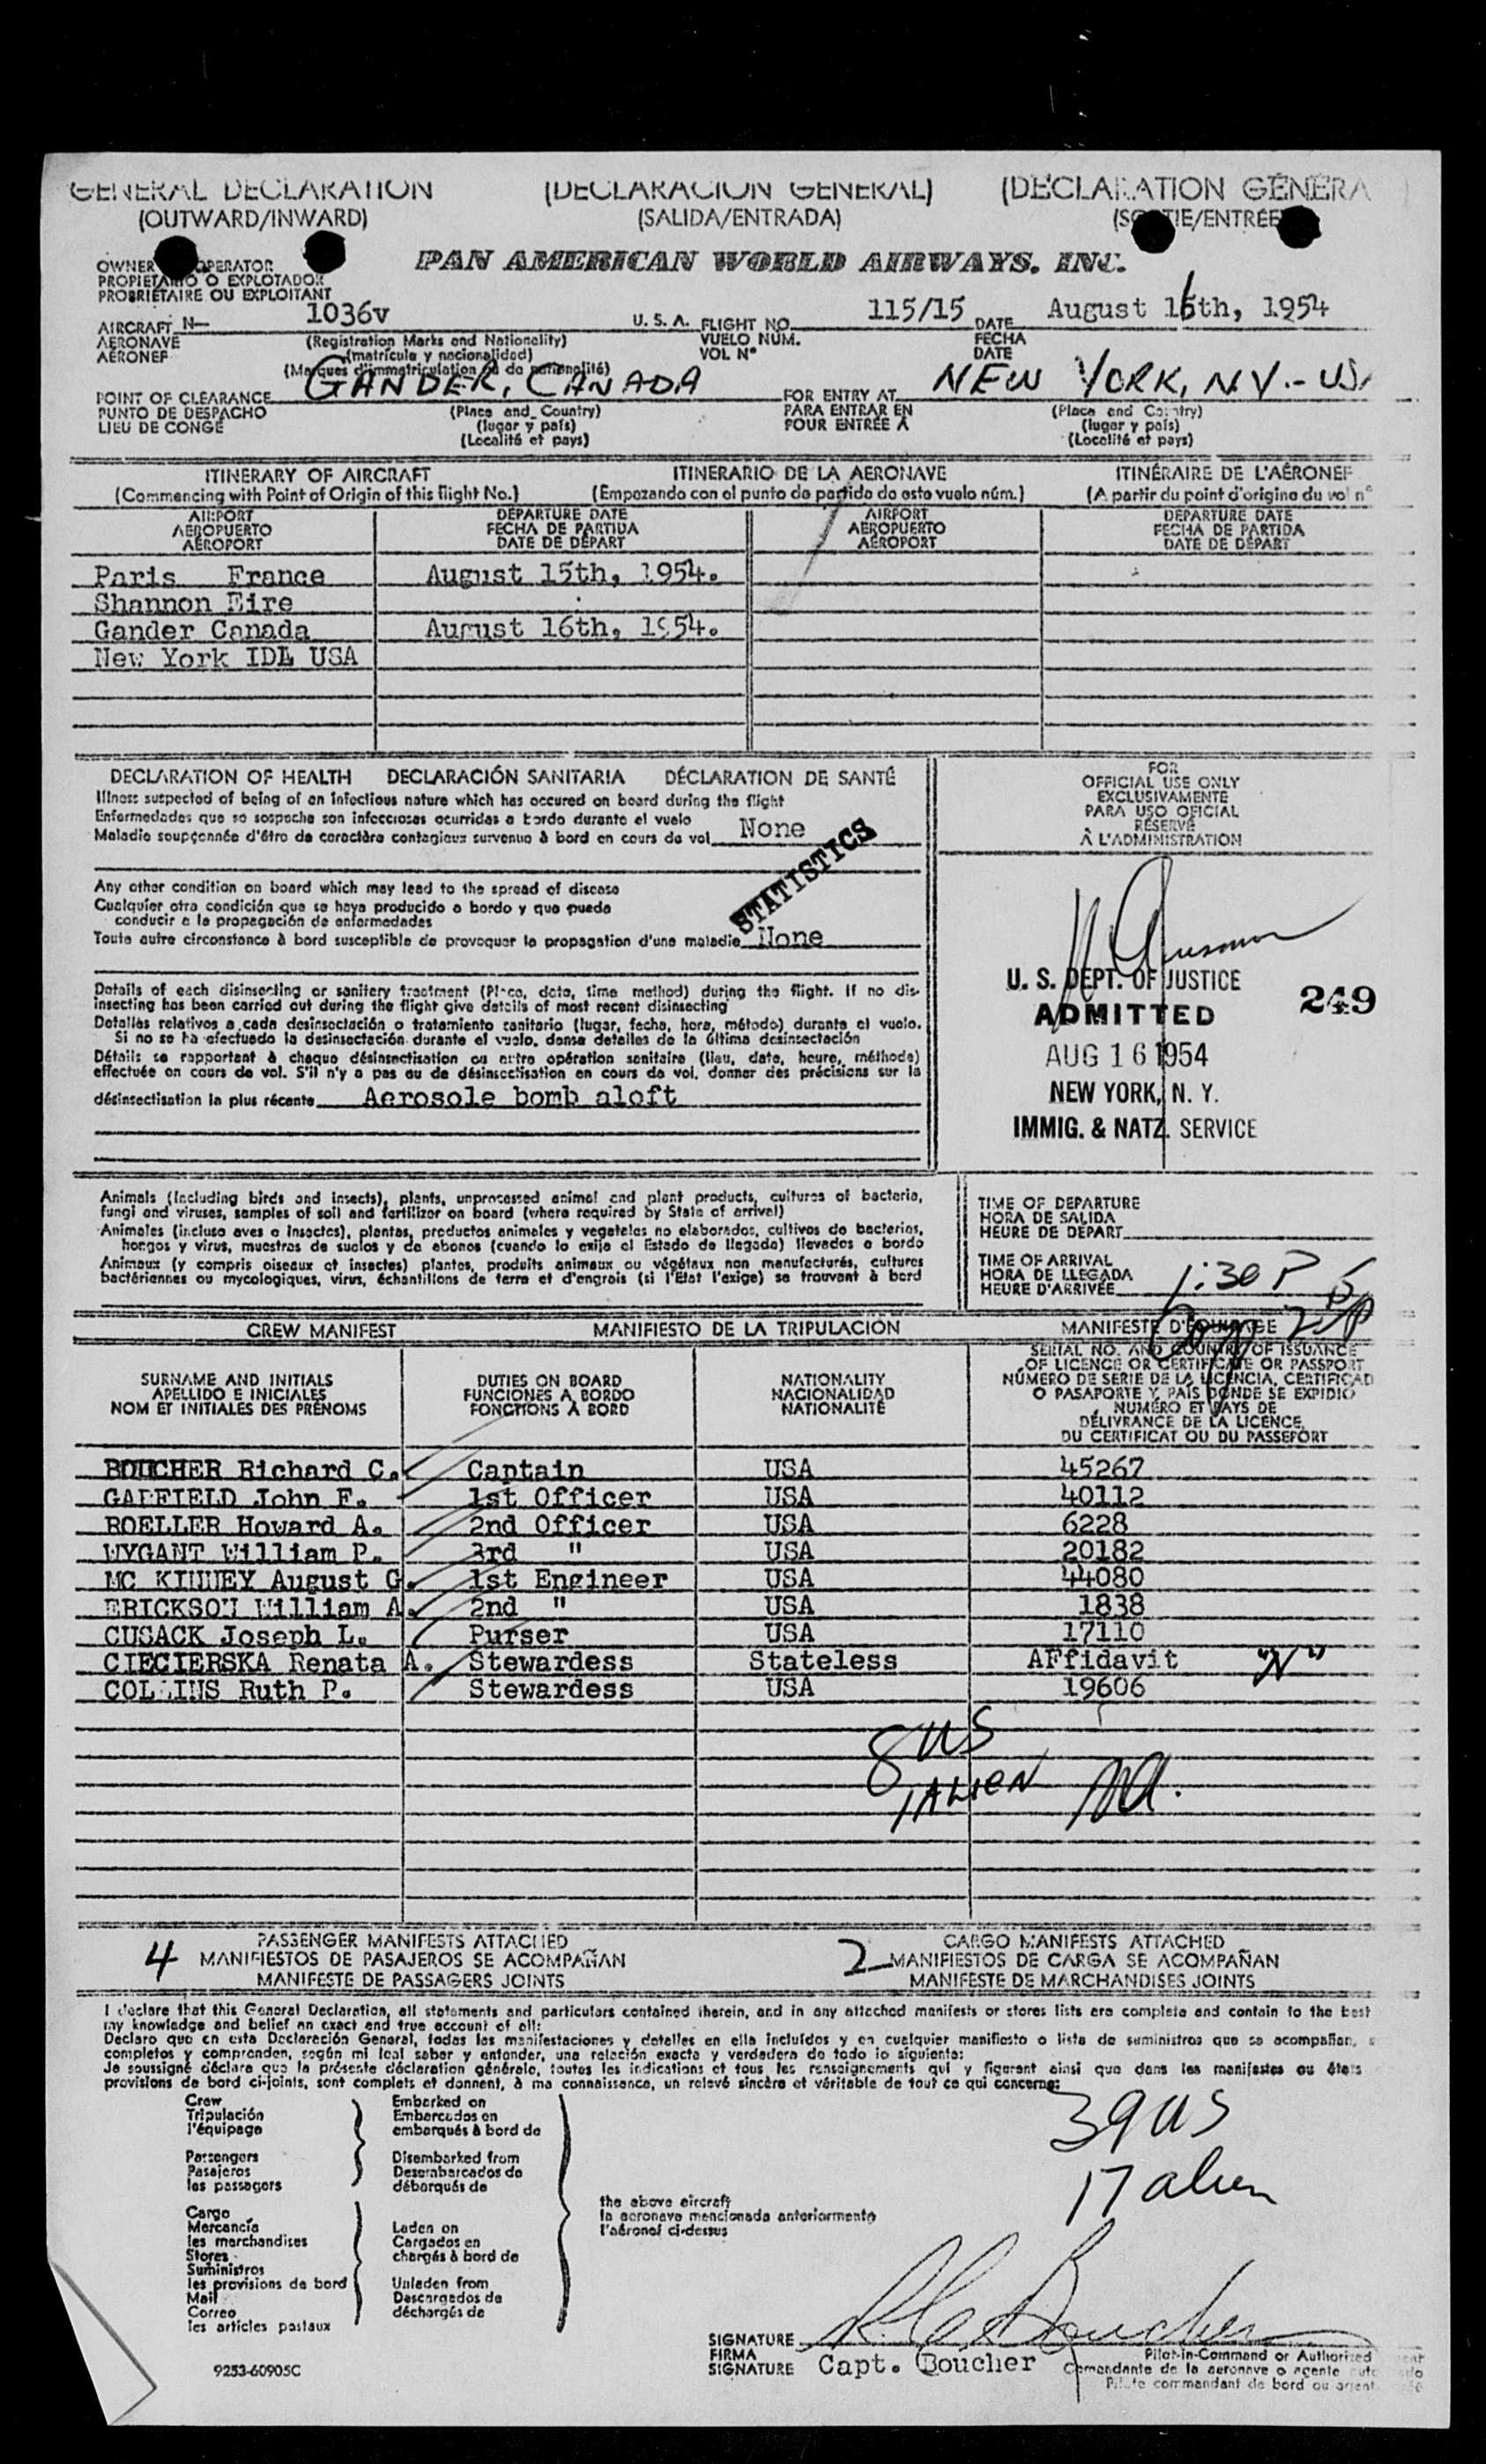 GENERAL DECLARATION (DECLARACION GENERAL) (DÉCLARATION GÉNÉRA
(OUTWARD/INWARD) (SALIDA/ENTRADA) (SORTIE/ENTRÉE
PAN AMERICAN WORLD AIRWAYS, INC.
OWNER OPERATOR
PROPIETARIO O EXPLOTADOR
PROPRIÉTAIRE OU EXPLOITANT
AIRCRAFT N- 1036v U. S. A. FLIGHT NO. 115/15 DATE August 16th, 1954
AERONAVE (Registration Marks and Nationality) VUELO NUM. FECHA
AÉRONEF (matrícula y nacionalidad) VOL N° DATE
(Marques d'immatriculation ou de nationalité)
POINT OF CLEARANCE GANDER, CANADA FOR ENTRY AT NEW YORK, NY.-US
PUNTO DE DESPACHO (Place and Country) PARA ENTRAR EN (Place and Country)
LIEU DE CONGÉ (lugar y país) POUR ENTRÉE A (lugar y país)
(Localité et pays) (Localité et pays)
ITINERARY OF AIRCRAFT ITINERARIO DE LA AERONAVE ITINÉRAIRE DE L'AÉRONEF
(Commencing with Point of Origin of this flight No.) (Empezando con el punto de partida de este vuelo núm.) (A partir du point d'origine du vol n°
AIRPORT DEPARTURE DATE AIRPORT DEPARTURE DATE
AEROPUERTO FECHA DE PARTIDA AEROPUERTO FECHA DE PARTIDA
AÉROPORT DATE DE DÉPART AÉROPORT DATE DE DÉPART
Paris France August 15th, 1954.
Shannon Eire
Gander Canada August 16th, 1954.
New York IDL USA
DECLARATION OF HEALTH DECLARACIÓN SANITARIA DÉCLARATION DE SANTÉ
Illness suspected of being of an infectious nature which has occured on board during the flight
Enfermedades que se sospecha son infecciosas ocurridas a bordo durante el vuelo
Maladie soupçonnée d'être de caractère contagieux survenue à bord en cours de vol None
STATISTICS
Any other condition on board which may lead to the spread of disease
Cualquier otra condición que se haya producido a bordo y que pueda
conducir a la propagación de enfermedades
Toute autre circonstance à bord susceptible de provoquer la propagation d'une maladie None
Details of each disinsecting or sanitary treatment (Place, date, time method) during the flight. If no dis-
insecting has been carried out during the flight give details of most recent disinsecting
Detalles relativos a cada desinsectación o tratamiento sanitario (lugar, fecha, hora, método) durante el vuelo.
Si no se ha efectuado la desinsectación durante el vuelo, dense detalles de la última desinsectación
Détails se rapportant à chaque désinsectisation ou autre opération sanitaire (lieu, date, heure, méthode)
effectuée en cours de vol. S'il n'y a pas eu de désinsectisation en cours de vol, donner des précisions sur la
désinsectisation la plus récente Aerosole bomb aloft
FOR
OFFICIAL USE ONLY
EXCLUSIVAMENTE
PARA USO OFICIAL
RÉSERVÉ
À L'ADMINISTRATION
U. S. DEPT. OF JUSTICE
ADMITTED 249
AUG 16 1954
NEW YORK, N. Y.
IMMIG. & NATZ. SERVICE
Animals (including birds and insects), plants, unprocessed animal and plant products, cultures of bacteria,
fungi and viruses, samples of soil and fertilizer on board (where required by State of arrival)
Animales (incluso aves e insectos), plantas, productos animales y vegetales no elaborados, cultivos de bacterias,
hongos y virus, muestras de suelos y de abonos (cuando lo exija el Estado de llegada) llevados a bordo
Animaux (y compris oiseaux et insectes) plantes, produits animaux ou végétaux non manufacturés, cultures
bactériennes ou mycologiques, virus, échantillons de terre et d'engrais (si l'Etat l'exige) se trouvant à bord
TIME OF DEPARTURE
HORA DE SALIDA
HEURE DE DÉPART
TIME OF ARRIVAL
HORA DE LLEGADA
HEURE D'ARRIVÉE 1:30 P
CREW MANIFEST MANIFIESTO DE LA TRIPULACIÓN MANIFESTE D'ÉQUIPAGE
SURNAME AND INITIALS DUTIES ON BOARD NATIONALITY SERIAL NO. AND COUNTRY OF ISSUANCE
APELLIDO E INICIALES FUNCIONES A BORDO NACIONALIDAD OF LICENCE OR CERTIFICATE OR PASSPORT
NOM ET INITIALES DES PRÉNOMS FONCTIONS À BORD NATIONALITÉ NÚMERO DE SERIE DE LA LICENCIA, CERTIFICAD
O PASAPORTE Y PAÍS DONDE SE EXPIDIÓ
NUMÉRO ET PAYS DE
DÉLIVRANCE DE LA LICENCE,
DU CERTIFICAT OU DU PASSEPORT
BOUCHER Richard C. Captain USA 45267
GARFIELD John F. 1st Officer USA 40112
ROELLER Howard A. 2nd Officer USA 6228
WYGANT William P. 3rd " USA 20182
MC KINNEY August G. 1st Engineer USA 44080
ERICKSON William A. 2nd " USA 1838
CUSACK Joseph L. Purser USA 17110
CIECIERSKA Renata A. Stewardess Stateless AFfidavit "N"
COLLINS Ruth P. Stewardess USA 19606
8 US
1 ALIEN
4 PASSENGER MANIFESTS ATTACHED 2 CARGO MANIFESTS ATTACHED
MANIFIESTOS DE PASAJEROS SE ACOMPAÑAN MANIFIESTOS DE CARGA SE ACOMPAÑAN
MANIFESTE DE PASSAGERS JOINTS MANIFESTE DE MARCHANDISES JOINTS
I declare that this General Declaration, all statements and particulars contained therein, and in any attached manifests or stores lists are complete and contain to the best
my knowledge and belief an exact and true account of all:
Declaro que en esta Declaración General, todas las manifestaciones y detalles en ella incluídos y en cualquier manifiesto o lista de suministros que se acompañan,
completos y comprenden, según mi leal saber y entender, una relación exacta y verdadera de todo lo siguiente:
Je soussigné déclare que la présente déclaration générale, toutes les indications et tous les renseignements qui y figurent ainsi que dans les manifestes ou états
provisions de bord ci-joints, sont complets et donnent, à ma connaissance, un relevé sincère et véritable de tout ce qui concerne:
Crew Embarked on
Tripulación Embarcados en
l'équipage embarqués à bord de
Passengers Disembarked from
Pasajeros Desembarcados de
les passagers débarqués de
39 US
17 alien
the above aircraft
la aeronave mencionada anteriormente
l'aéronef ci-dessus
Cargo
Mercancía Laden on
les marchandises Cargados en
Stores chargés à bord de
Suministros
les provisions de bord Unladen from
Mail Descargados de
Correo déchargés de
les articles postaux
SIGNATURE R. C. Boucher
FIRMA Pilot-in-Command or Authorized
SIGNATURE Capt. Boucher Comandante de la aeronave o agente
Pilote commandant de bord ou agent
9253-60905C